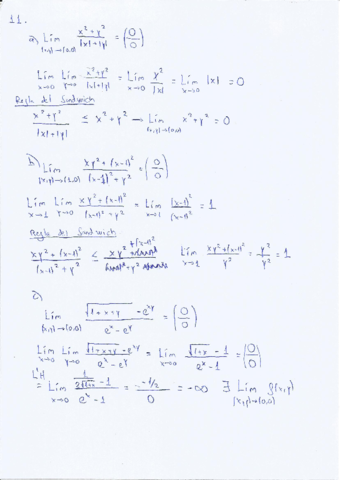 11.
a) Lim (x,y)→(0,0) x²+y² / |x|+|y| = (0/0)
Lim x→0 Lim y→0 x²+y² / |x|+|y| = Lim x→0 y² / |x| = Lim x→0 |x| = 0
Regla del Sandwich
x²+y² / |x|+|y| ≤ x²+y² → Lim (x,y)→(0,0) x²+y² = 0
b) Lim (x,y)→(1,0) xy²+(x-1)² / (x-1)²+y² = (0/0)
Lim x→1 Lim y→0 xy²+(x-1)² / (x-1)²+y² = Lim x→1 (x-1)² / (x-1)² = 1
Regla del Sandwich
xy²+(x-1)² / (x-1)²+y² ≤ xy²+(x-1)² / y² Lim x→1 xy²+(x-1)² / y² = y² / y² = 1
c)
Lim (x,y)→(0,0) √1+x+y - e^xy / e^x - e^y = (0/0)
Lim x→0 Lim y→0 √1+x+y - e^xy / e^x - e^y = Lim x→0 √1+x - 1 / e^x - 1 = (0/0)
L'H = Lim x→0 1 / 2√1+x - 1 / e^x - 1 = -1/2 / 0 = -∞ ∃ Lim (x,y)→(0,0) f(x,y)